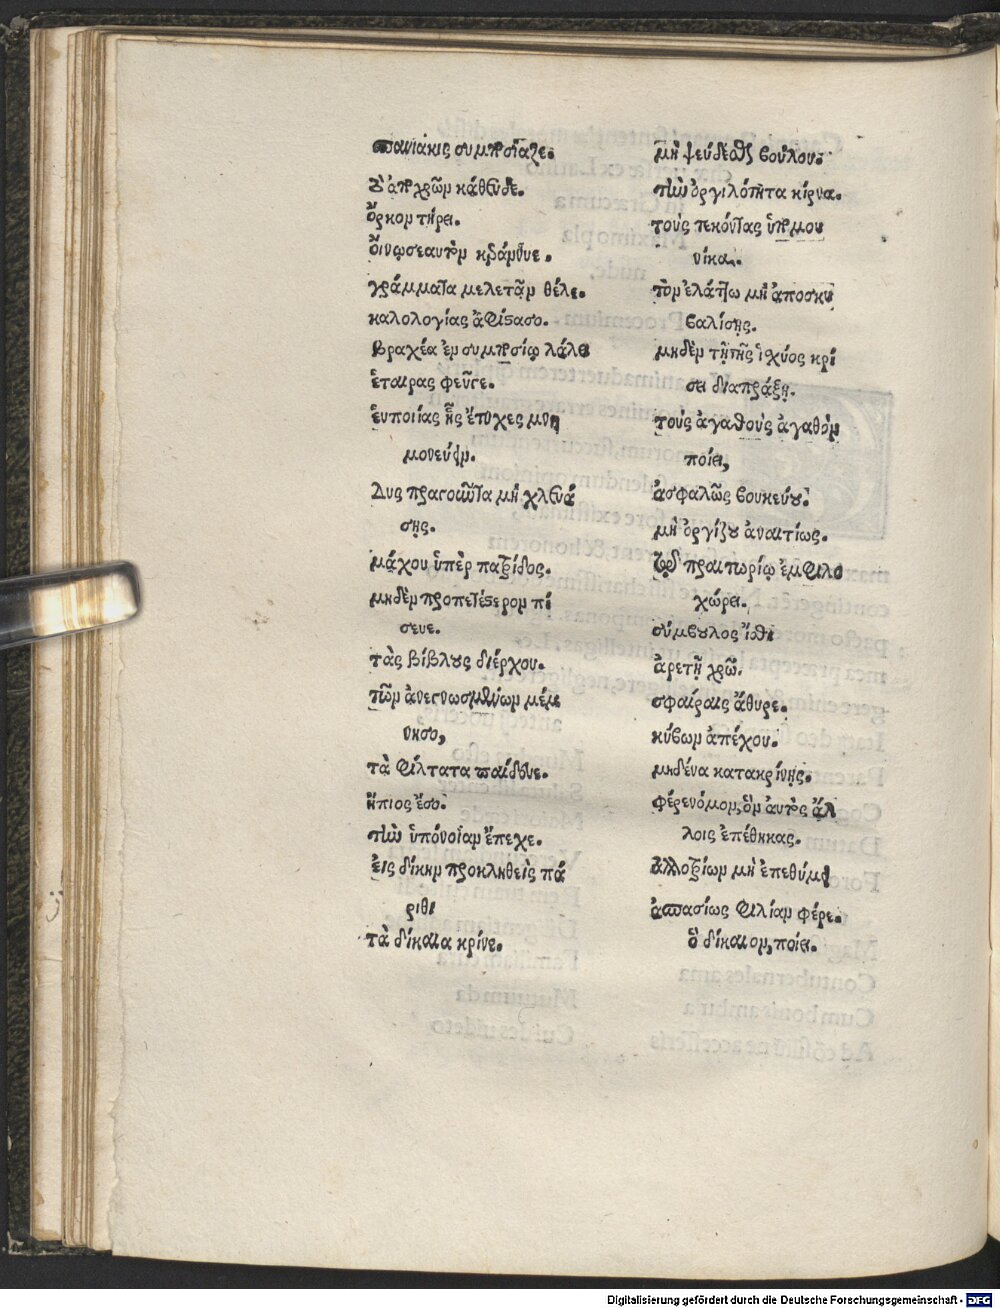 σπανιάκις συμποσίαζε.
ὃ ἀπχρῶμ κάθευδε.
ὅρκομ τήρει.
οἴνῳ σεαυτὸμ κράμβυε.
γράμματα μελετᾶμ θέλε.
καλολογίας ἀφίστασο.
βραχέα ἐμ συμποσίῳ λάλει
ἑταιρας φεῦγε.
ἐυποιίας ἧς ἔτυχες μνη
μονεύομ.
Δυς πραγοῦντα μὴ χλευά
σῃς.
μάχου ὑπὲρ πατρίδος.
μηδὲμ προπετέστερομ πί
στευε.
τὰς βίβλους διέρχου.
τῶμ ἀνεγνωσμένωμ μέμ
νησο,
τὰ φίλτατα παίδευε.
ἤπιος ἔσο.
τὴν ὑπόνοίαμ ἔπεχε.
ἐις δίκημ προκληθεὶς πά
ριθι
τὰ δίκαια κρίνε.
μὴ ψεύδεσθαι βούλου.
τὴν ὀργιλότητα κίρνα.
τοὺς τεκόντας ὑπομον
νίκα.
τὸμ ἐλάττω μὴ ἀποσκυ
βαλίσῃς.
μηδὲμ τῇ τῆς ἰσχύος κρί
σει διαπράξῃ.
τοὺς ἀγαθοὺς ἀγαθὸμ
ποίει,
ἀσφαλῶς βουκεύου.
μὴ ὀργίζου ἀναιτίως.
πραιτωρίῳ ἐμφιλο
χώρει.
σύμβυλος ἴσθι
ἀρετῇ χρῶ.
σφαίραις ἄθυρε.
κύβωμ ἀπέχου.
μηδένα κατακρίνῃς.
φέρε νόμομ, ὃμ ἀυτὸς ἄλ
λοις ἐπέθηκας.
ἀλλοτρίωμ μὴ ἐπεθύμει
ἀσπασίως φιλίαμ φέρε.
ὃ δίκαιομ, ποίει.
Digitalisierung gefördert durch die Deutsche Forschungsgemeinschaft - DFG